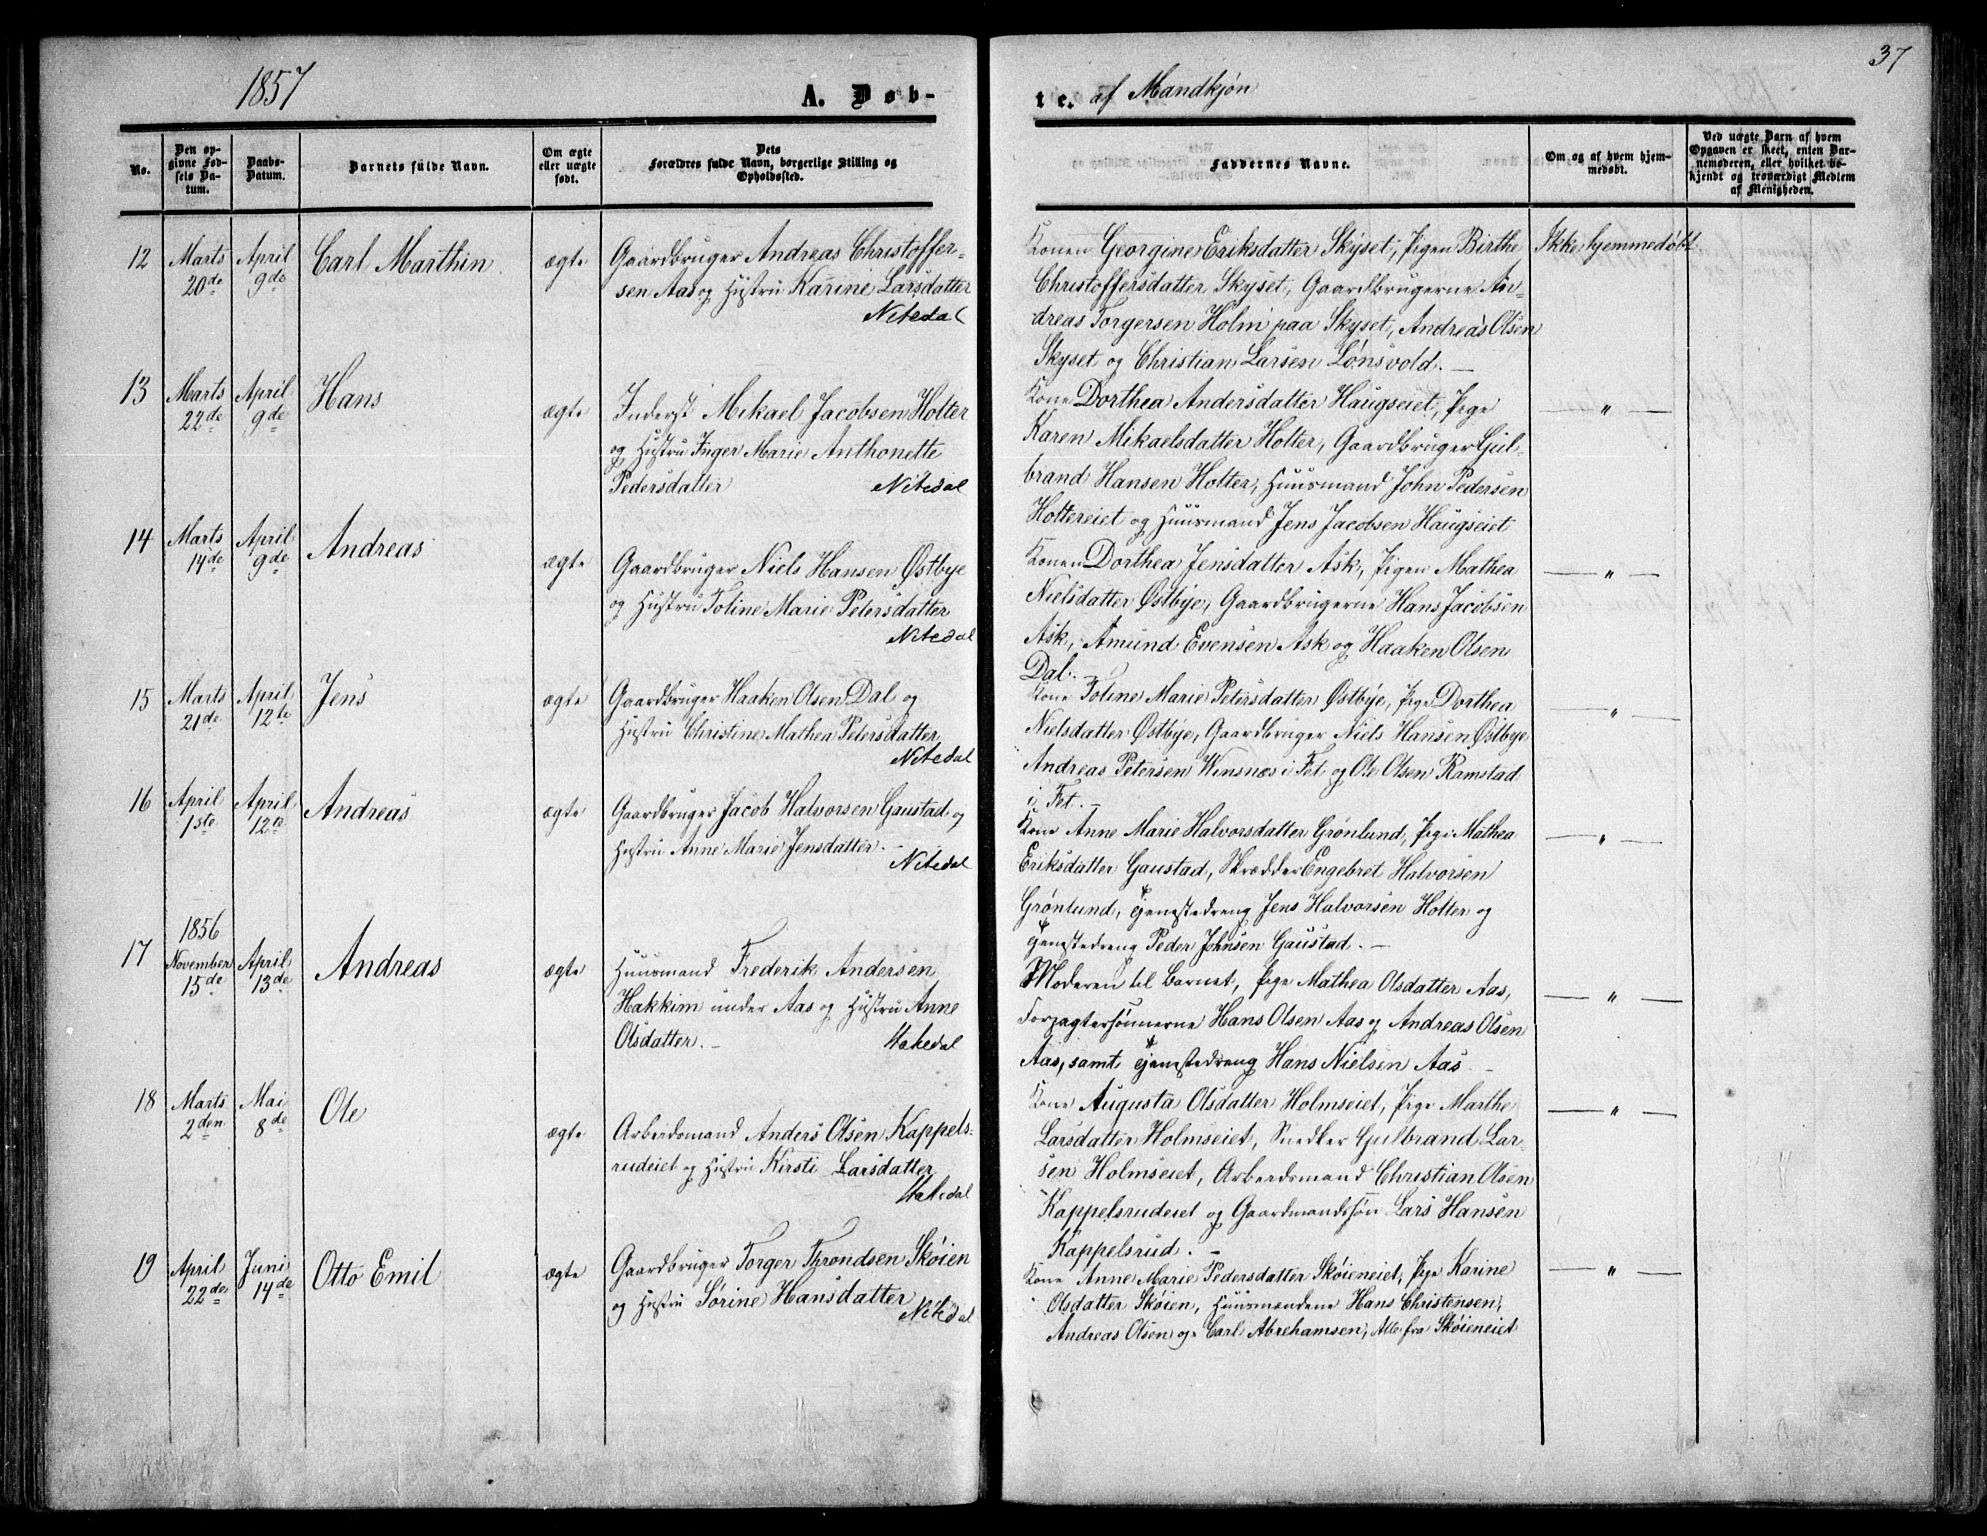 1857
A. Døb-
No.
Den op-
givne Fød-
sels Da-
tum.
Daabs-
Datum.
Barnets fulde Navn.
Om ægte
eller uægte
født.
Dets
Forældres fulde Navn, borgerlige Stilling og
Opholdssted.
12
Marts
20de
April
9de
Carl Marthin
ægte
Gaardbruger Andreas Christoffer-
sen Aas og Hustru Karine Larsdatter
Nitedal
13
Marts
22de
April
9de
Hans
ægte
Inderst Mikael Jacobsen Holter
og Hustru Inger Marie Anthonette
Pedersdatter
Nitedal
14
Marts
14de
April
9de
Andreas
ægte
Gaardbruger Niels Hansen Østbye
og Hustru Toline Marie Petersdatter
Nitedal
15
Marts
21de
April
12te
Jens
ægte
Gaardbruger Haaken Olsen Dal og
Hustru Christine Mathea Petersdatter
Nitedal
16
April
1ste
April
12te
Andreas
ægte
Gaardbruger Jacob Halvorsen Gaustad og
Hustru Anne Marie Jensdatter. -
Nitedal
17
1856
November
15de
April
13de
Andreas
ægte
Huusmand Frederik Andersen
Hakkim under Aas og Hustru Anne
Olsdatter. -
Hakedal
18
Marts
2den
Mai
8de
Ole
ægte
Arbeidsmand Anders Olsen Kappels-
rudeiet og Hustru Kirsti Larsdatter
Hakedal
19
April
22de
Juni
14de
Otto Emil
ægte
Gaardbruger Torger Throndsen Skøien
og Hustru Sørine Hansdatter
Nitedal
37
te. af Mandkjøn
Faddernes Navne.
Om og af hvem hjem-
medøbt.
Ved uægte Barn af hvem
Opgaven er skeet, enten Bar-
nemoderen, eller hvilket be-
kjendt og troværdigt Medlem
af Menigheden.
Konen Georgine Eriksdatter Skyset, Pigen Birthe
Christoffersdatter Skyset, Gaardbrugerne An-
dreas Torgersen Holm paa Skyset, Andreas Olsen
Skyset og Christian Larsen Lønsvold. -
Ikke hjemmedøbt
Kone Dorthea Andersdatter Haugseiet, Pige
Karen Mikaelsdatter Holter, Gaardbruger Gul-
brand Hansen Holter, Huusmand John Pedersen
Holtereiet og Huusmand Jens Jacobsen Haugseiet
— " —
Konen Dorthea Jensdatter Ask, Pigen Mathea
Nielsdatter Østbye, Gaardbrugerne Hans Jacobsen
Ask, Amund Evensen Ask og Haaken Olsen
Dal. -
— " —
Kone Toline Marie Petersdatter Østbye, Pige Dorthea
Nielsdatter Østbye, Gaardbruger Niels Hansen Østbye
Andreas Petersen Winsnæs i Fet og Ole Olsen Ramstad
i Fet. -
— " —
Kone Anne Marie Halvorsdatter Grønlund, Pige Mathea
Eriksdatter Gaustad, Skrædder Engebret Halvorsen
Grønlund, Tjenestedreng Jens Halvorsen Holter og
Tjenestedreng Peder Johnsen Gaustad. -
— " —
Moderen til Barnet, Pige Mathea Olsdatter Aas,
Forpagtersønnerne Hans Olsen Aas og Andreas Olsen
Aas, samt Tjenestedreng Hans Nielsen Aas. -
— " —
Kone Augusta Olsdatter Holmseiet, Pige Marthe
Larsdatter Holmseiet, Snedker Gulbrand Lar-
sen Holmseiet, Arbeidsmand Christian Olsen
Kappelsrudeiet og Gaardmandssøn Lars Hansen
Kappelsrud. -
— " —
Kone Anne Marie Pedersdatter Skøieneiet, Pige Karine
Olsdatter Skøien, Huusmændene Hans Christensen,
Andreas Olsen og Carl Abrehamsen, Alle fra Skøieneiet
— " —